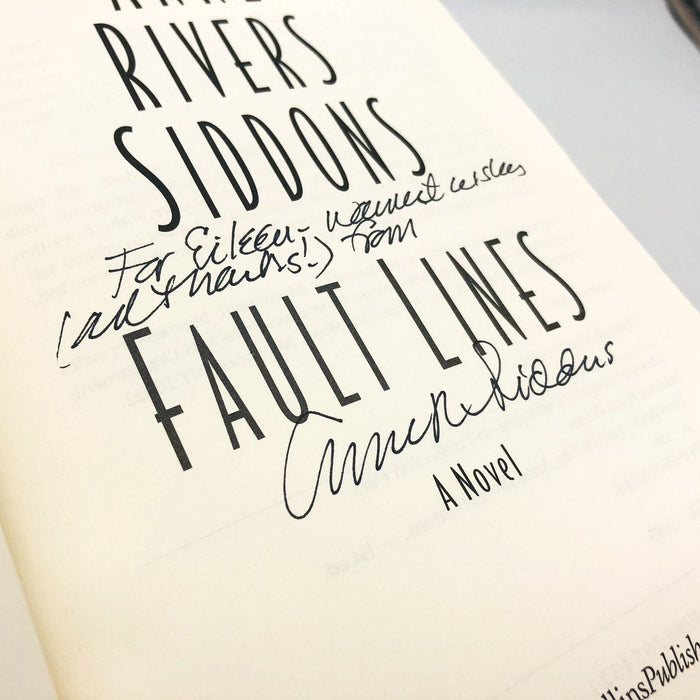 RIVERS
SIDDONS
For Eileen- warmest wishes
(and thanks!) from
FAULT LINES
Anne R Siddons
A Novel
llinsPublish